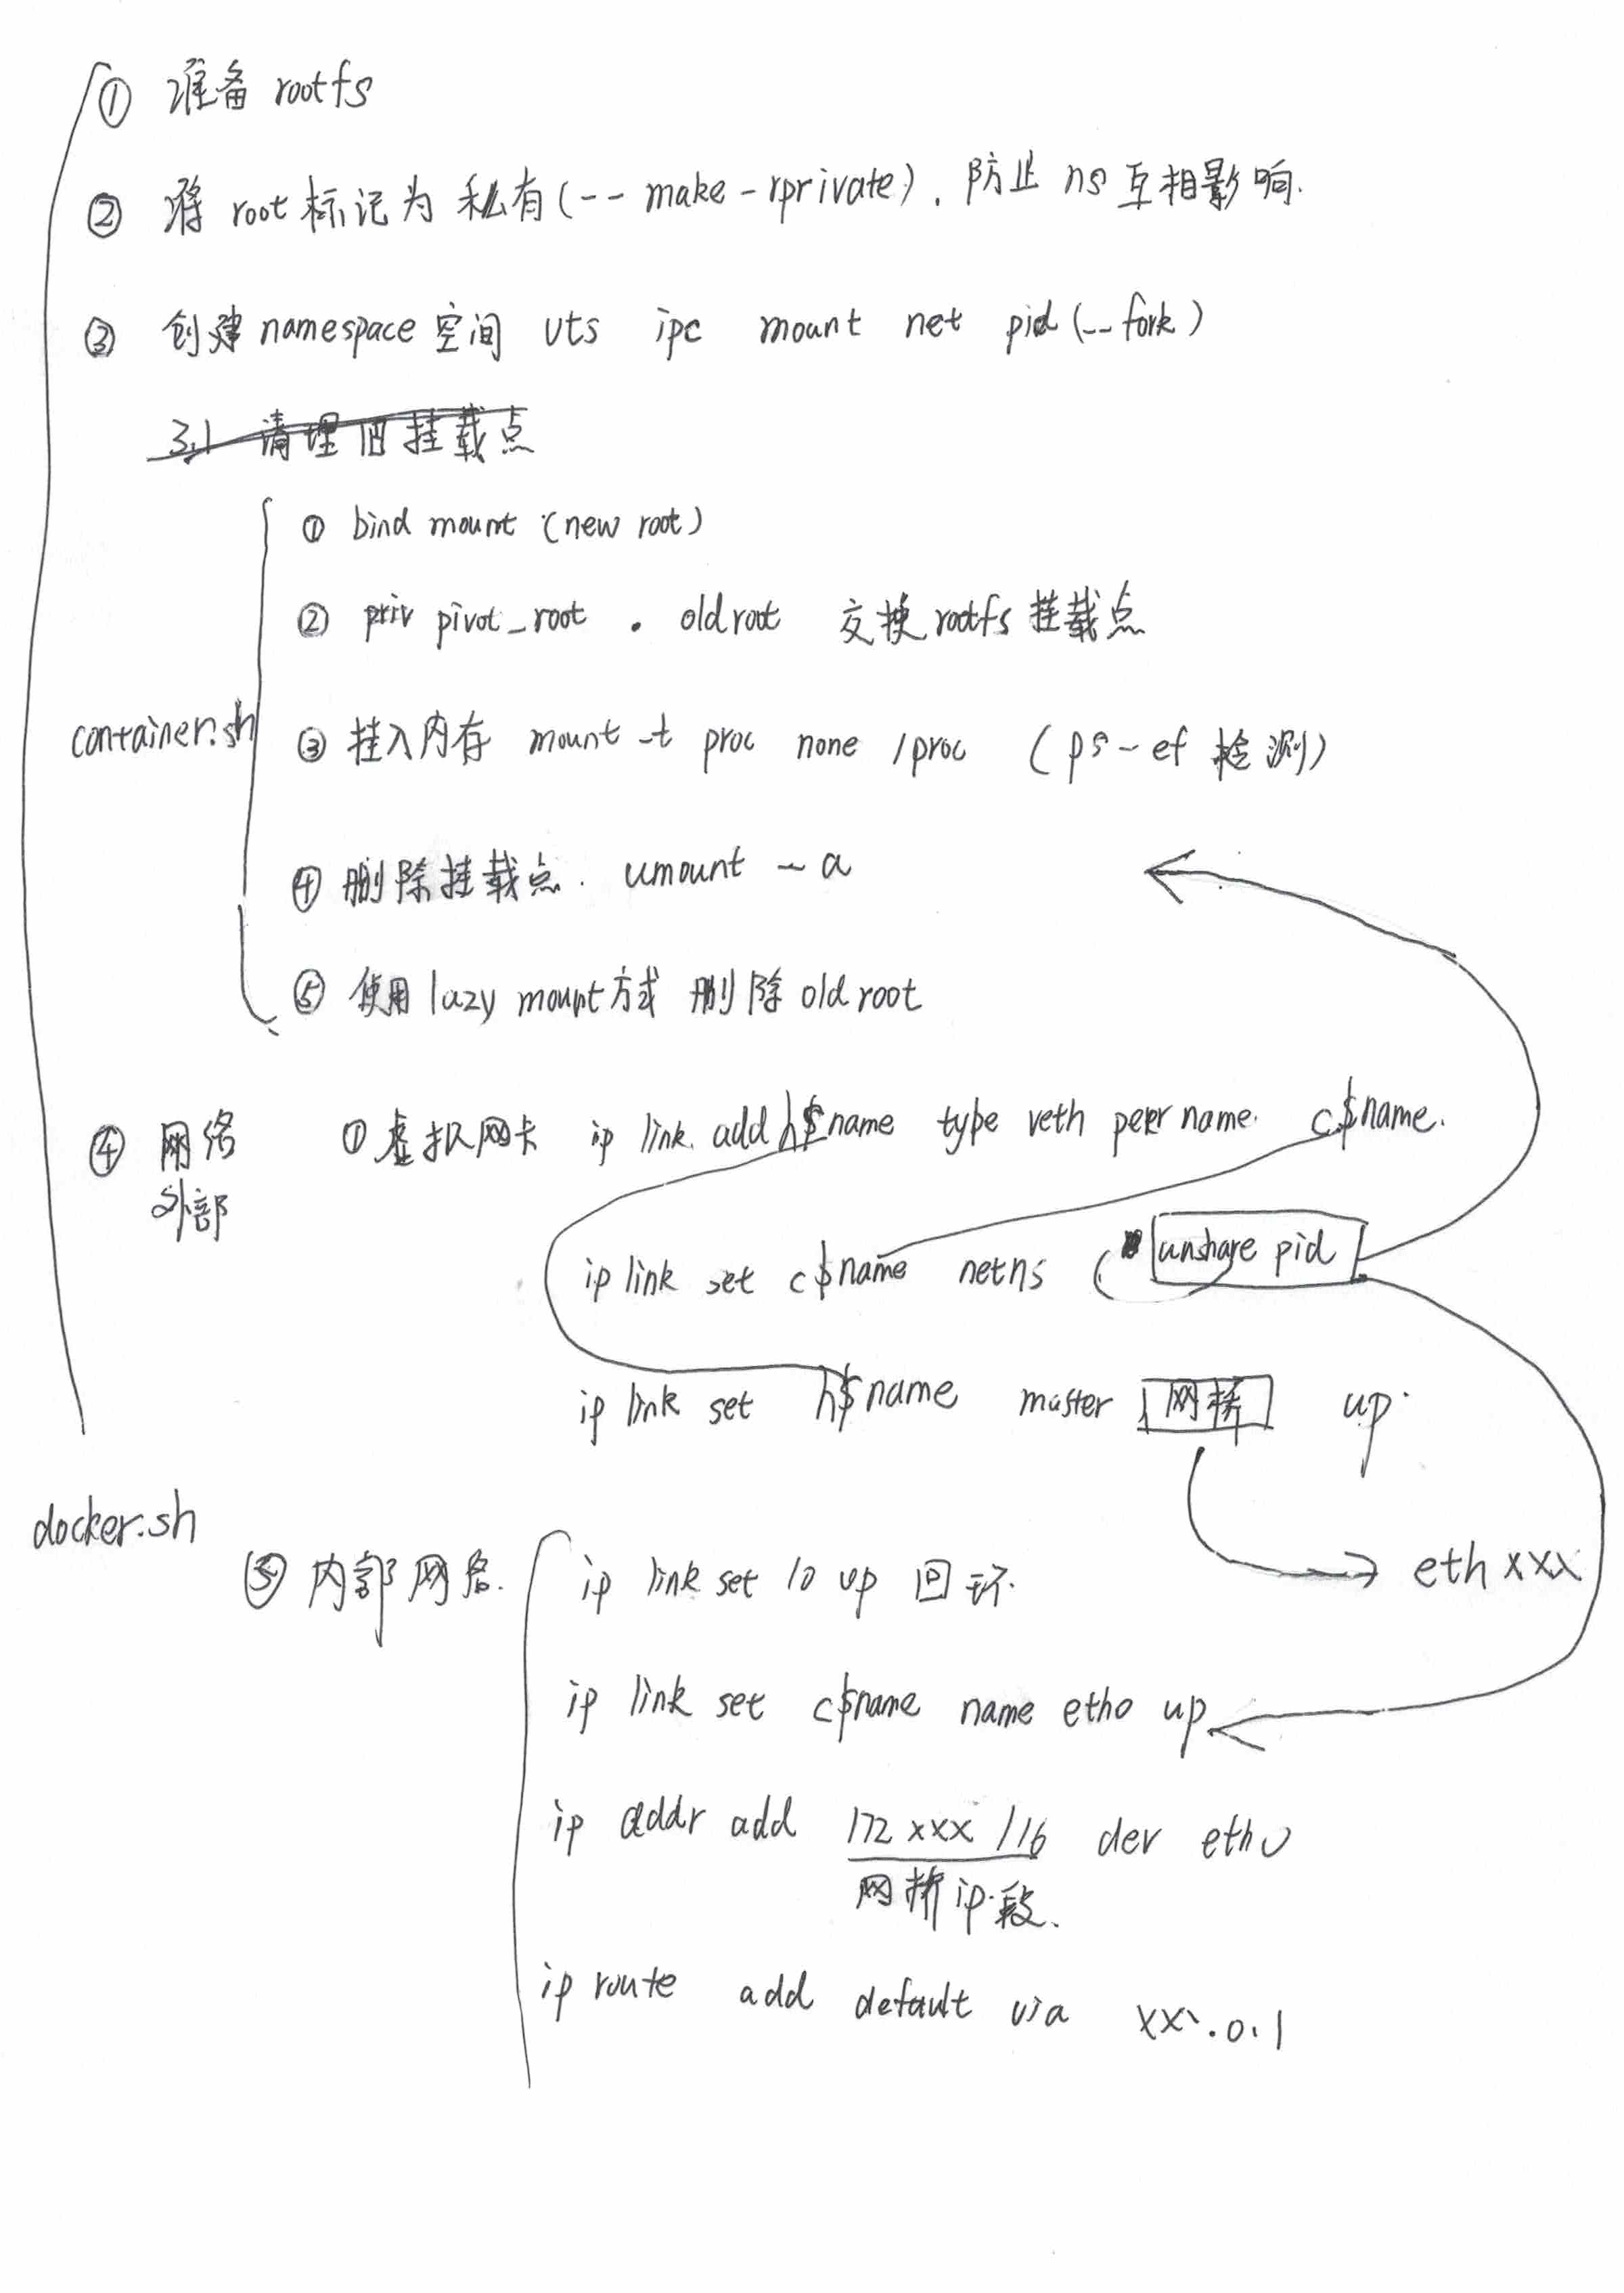 ① 准备 rootfs
② 将 root 标记为 私有(-- make -rprivate). 防止 ns 互相影响.
③ 创建 namespace 空间 uts ipc mount net pid (--fork)
3.1 清理旧挂载点
① bind mount (new root)
② priv pivot_root . oldroot 交换 rootfs 挂载点
container.sh
③ 挂入内存 mount -t proc none /proc (ps-ef 检测)
④ 删除挂载点. umount -a
⑤ 使用 lazy mount 方式 删除 old root
④ 网络 ① 虚拟网卡 ip link add h$name type veth peer name c$name.
外部
ip link set c$name netns ( unshare pid
ip link set h$name master 网桥 up
docker.sh
eth xxx
⑤ 内部网络. ip link set lo up 回环.
ip link set c$name name eth0 up
ip addr add 172 xxx /16 dev eth0
网桥 ip 段.
ip route add default via xxx.0.1